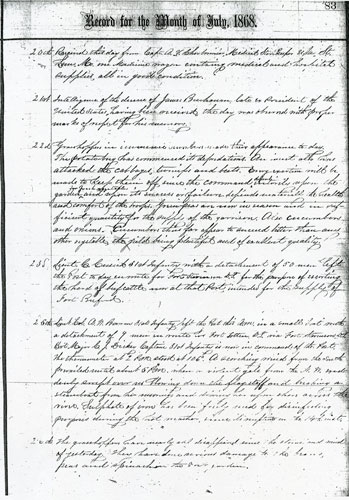 83
Record for the Month of July, 1868.
20th Received this day from Capt. A. V. Cherbonnier, Medical Storekeeper U.S.A. St.
Louis Mo. one Medicine wagon containing medical and hospital
supplies, all in good condition.
21st Intelligence of the demise of James Buchanan, late ex President of the
United States, having been received, the day was observed with proper
marks of respect for his memory
22d Grasshoppers in immense numbers made their appearance to day.
The potato bug has commenced its depredations. An insect also has
attacked the cabbages, turnips and beets. Every exertion will be
made to keep them off, since the
garden and upon its success or failure, depends much the health
and comfort of the troops. Green peas are now in season and in suf-
ficient quantity for the supply of the garrison, Also cucumbers
and onions. Cucumbers thus far appear to succeed better than any
other vegetable, the yield being plentiful and of excellent quality.
25 Lieut. C. Cusick 31st Infantry with a detachment of 50 men left
the Post to day en route for Fort Stevenson D.T. for the purpose of escorting
the herd of beef cattle now at that Post, intended for the supply of
Fort Buford.
26th Lieut. Col. A. D. Bowman 31st Infantry, left the Post this A.M. in a small boat with
a detachment of 9 men en route for Fort Sutton D.T. via Fort Stevenson
Captain 31st Infantry is now in command of the Post.
the thermometer at 2 P.M. stood at 106°. A scorching wind from the South
prevailed until about 6 P.M. when a violent gale from the N.W. made
throwing down the flagstaff and breaking a
steamboat from her moorings and driving her upon shore across the
river. Sulphate of iron has been freely used for disinfecting
purposes during the hot weather,
The grasshoppers have nearly all disappeared since the storm and wind
of yesterday. They have done serious damage to the beans,
peas and